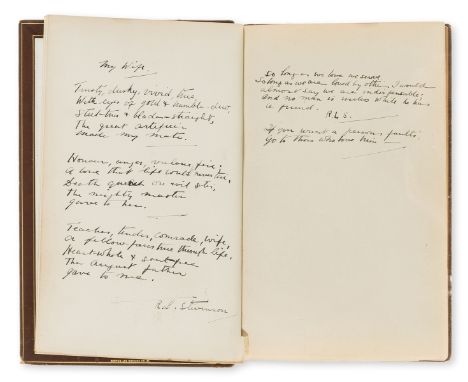 My Wife
Trusty, dusky, vivid, true,
With eyes of gold & bramble dew,
Steel-true & blade-straight,
The great artificer
Made my mate.
Honour, anger, valour, fire;
A love that life could never tire,
Death quench or evil stir,
The mighty master
Gave to her.
Teacher, tender, comrade, wife,
A fellow-farer true through life,
Heart-whole & soul-free
The august father
Gave to me.
R.L. Stevenson
So long as we love we serve
So long as we are loved by others, I would
almost say we are indispensable;
and no man is useless while he has
a friend.
R L S.
If you want a person's faults
go to those who love him